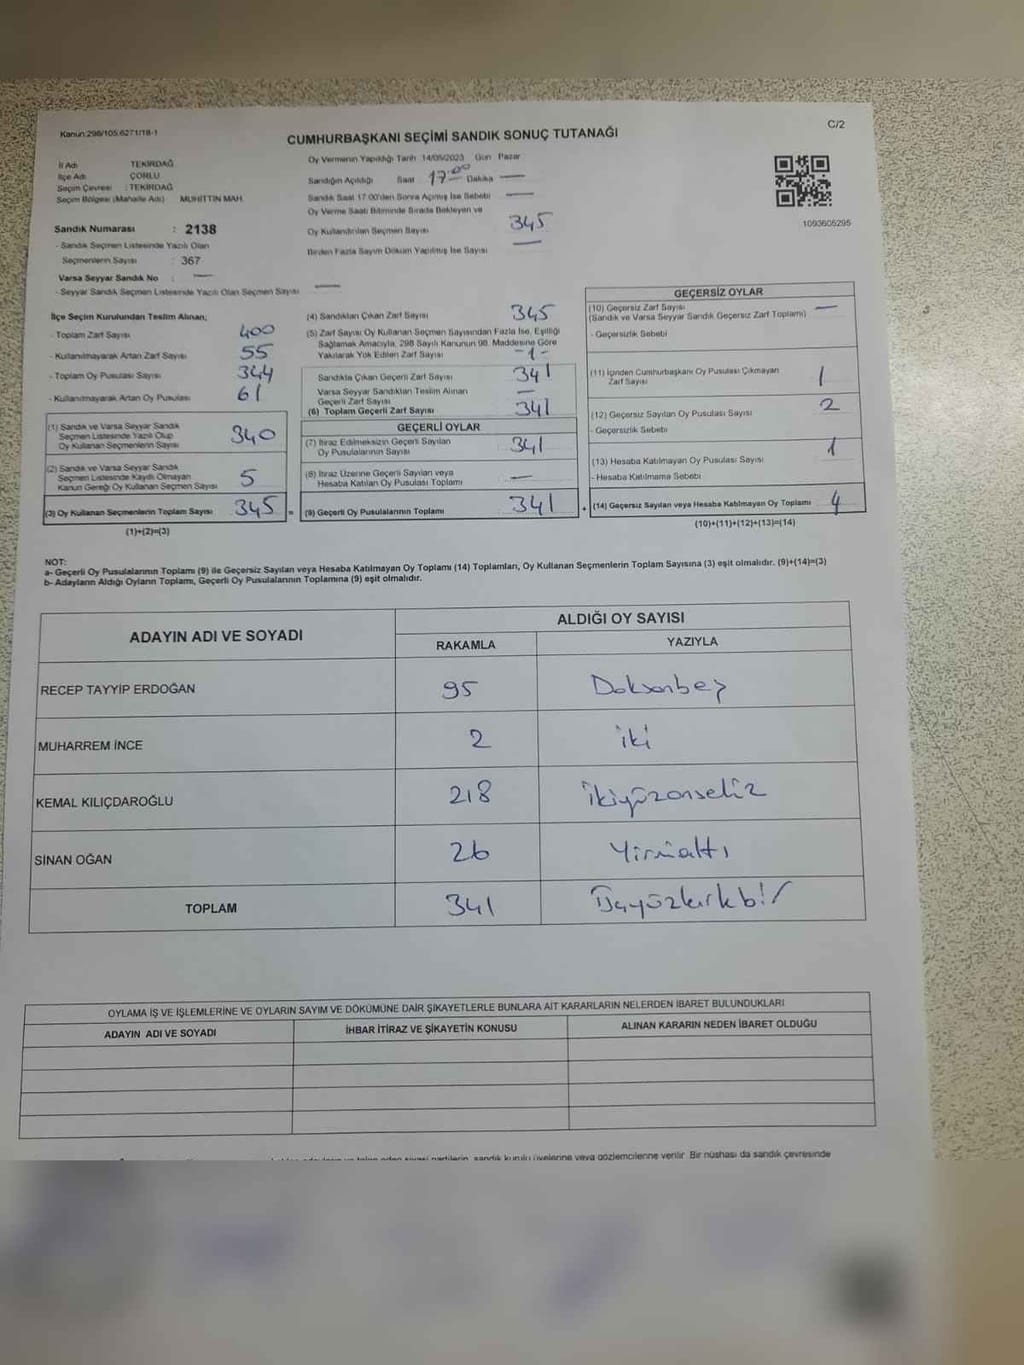 Kanun:298/105,6271/18-1
C/2
CUMHURBAŞKANI SEÇİMİ SANDIK SONUÇ TUTANAĞI
İl Adı TEKİRDAĞ
İlçe Adı ÇORLU
Seçim Çevresi : TEKİRDAĞ
Seçim Bölgesi (Mahalle Adı) MUHİTTİN MAH.
Sandık Numarası : 2138
- Sandık Seçmen Listesinde Yazılı Olan
Seçmenlerin Sayısı : 367
Varsa Seyyar Sandık No : —
- Seyyar Sandık Seçmen Listesinde Yazılı Olan Seçmen Sayısı —
Oy Vermenin Yapıldığı Tarih 14/05/2023 Gün Pazar
Sandığın Açıldığı Saat 17:00 Dakika —
Sandık Saat 17.00'den Sonra Açılmış İse Sebebi —
Oy Verme Saati Bitiminde Sırada Bekleyen ve
Oy Kullandırılan Seçmen Sayısı 345
Birden Fazla Sayım Döküm Yapılmış İse Sayısı —
1093605295
İlçe Seçim Kurulundan Teslim Alınan;
- Toplam Zarf Sayısı 400
- Kullanılmayarak Artan Zarf Sayısı 55
- Toplam Oy Pusulası Sayısı 344
- Kullanılmayarak Artan Oy Pusulası 61
(1) Sandık ve Varsa Seyyar Sandık
Seçmen Listesinde Yazılı Olup
Oy Kullanan Seçmenlerin Sayısı 340
(2) Sandık ve Varsa Seyyar Sandık
Seçmen Listesinde Kayıtlı Olmayan
Kanun Gereği Oy Kullanan Seçmen Sayısı 5
(3) Oy Kullanan Seçmenlerin Toplam Sayısı 345 =
(1)+(2)=(3)
(4) Sandıktan Çıkan Zarf Sayısı 345
(5) Zarf Sayısı Oy Kullanan Seçmen Sayısından Fazla İse, Eşitliği
Sağlamak Amacıyla, 298 Sayılı Kanunun 98. Maddesine Göre
Yakılarak Yok Edilen Zarf Sayısı -1-
Sandıkta Çıkan Geçerli Zarf Sayısı 341
Varsa Seyyar Sandıktan Teslim Alınan
Geçerli Zarf Sayısı —
(6) Toplam Geçerli Zarf Sayısı 341
GEÇERLİ OYLAR
(7) İtiraz Edilmeksizin Geçerli Sayılan
Oy Pusulalarının Sayısı 341
(8) İtiraz Üzerine Geçerli Sayılan veya
Hesaba Katılan Oy Pusulası Toplamı —
(9) Geçerli Oy Pusulalarının Toplamı 341 +
GEÇERSİZ OYLAR
(10) Geçersiz Zarf Sayısı —
(Sandık ve Varsa Seyyar Sandık Geçersiz Zarf Toplamı)
- Geçersizlik Sebebi
(11) İçinden Cumhurbaşkanı Oy Pusulası Çıkmayan
Zarf Sayısı 1
(12) Geçersiz Sayılan Oy Pusulası Sayısı 2
- Geçersizlik Sebebi
(13) Hesaba Katılmayan Oy Pusulası Sayısı 1
- Hesaba Katılmama Sebebi
(14) Geçersiz Sayılan veya Hesaba Katılmayan Oy Toplamı 4
(10)+(11)+(12)+(13)=(14)
NOT:
a- Geçerli Oy Pusulalarının Toplamı (9) ile Geçersiz Sayılan veya Hesaba Katılmayan Oy Toplamı (14) Toplamları, Oy Kullanan Seçmenlerin Toplam Sayısına (3) eşit olmalıdır. (9)+(14)=(3)
b- Adayların Aldığı Oyların Toplamı, Geçerli Oy Pusulalarının Toplamına (9) eşit olmalıdır.
ADAYIN ADI VE SOYADI
ALDIĞI OY SAYISI
RAKAMLA YAZIYLA
RECEP TAYYİP ERDOĞAN 95 Doksanbeş
MUHARREM İNCE 2 iki
KEMAL KILIÇDAROĞLU 218 ikiyüzonsekiz
SİNAN OĞAN 26 Yirmialtı
TOPLAM 341 Üçyüzkırkbir
OYLAMA İŞ VE İŞLEMLERİNE VE OYLARIN SAYIM VE DÖKÜMÜNE DAİR ŞİKAYETLERLE BUNLARA AİT KARARLARIN NELERDEN İBARET BULUNDUKLARI
ADAYIN ADI VE SOYADI İHBAR İTİRAZ VE ŞİKAYETİN KONUSU ALINAN KARARIN NEDEN İBARET OLDUĞU
siyasi partilerin, sandık kurulu üyelerine veya gözlemcilerine verilir. Bir nüshası da sandık çevresinde